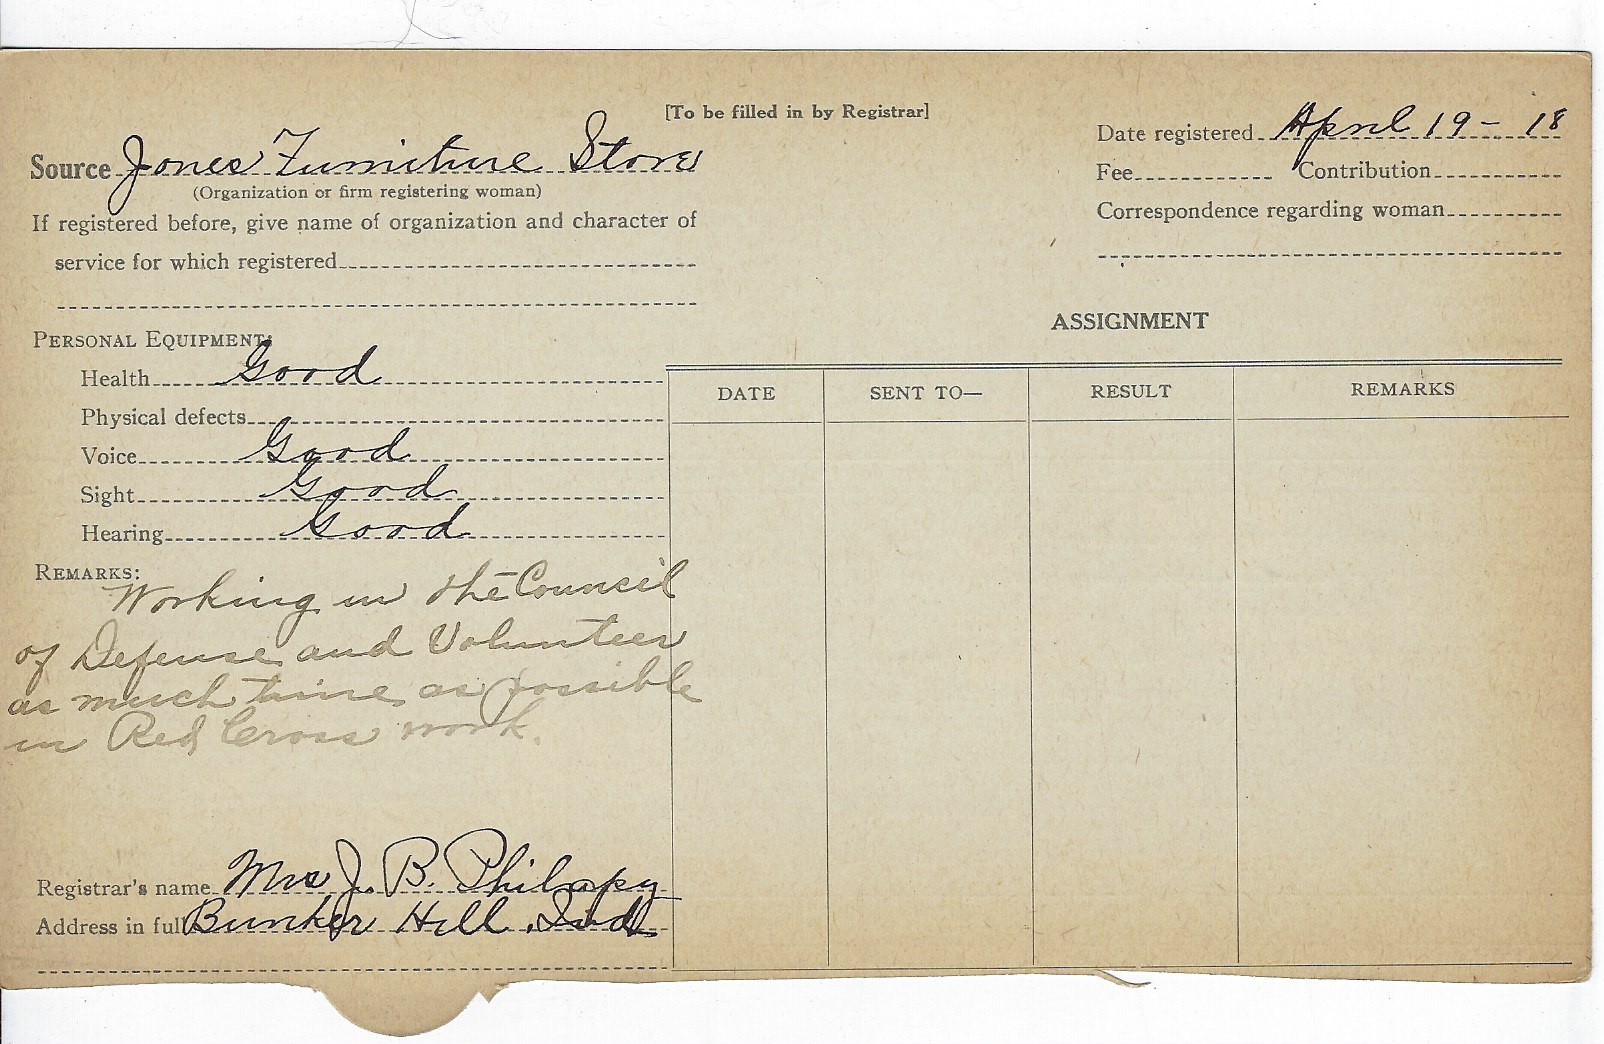 [To be filled in by Registrar]
Source Jones Furniture Store
(Organization or firm registering woman)
If registered before, give name of organization and character of
service for which registered
Date registered April 19 - 18
Fee Contribution
Correspondence regarding woman
PERSONAL EQUIPMENT:
Health Good
Physical defects
Voice Good
Sight Good
Hearing Good
REMARKS:
Working in the Council
of Defense and Volunteer
as much time as possible
in Red Cross work.
Registrar's name Mrs J. B. Philapy
Address in full Bunker Hill, Ind
ASSIGNMENT
DATE SENT TO— RESULT REMARKS